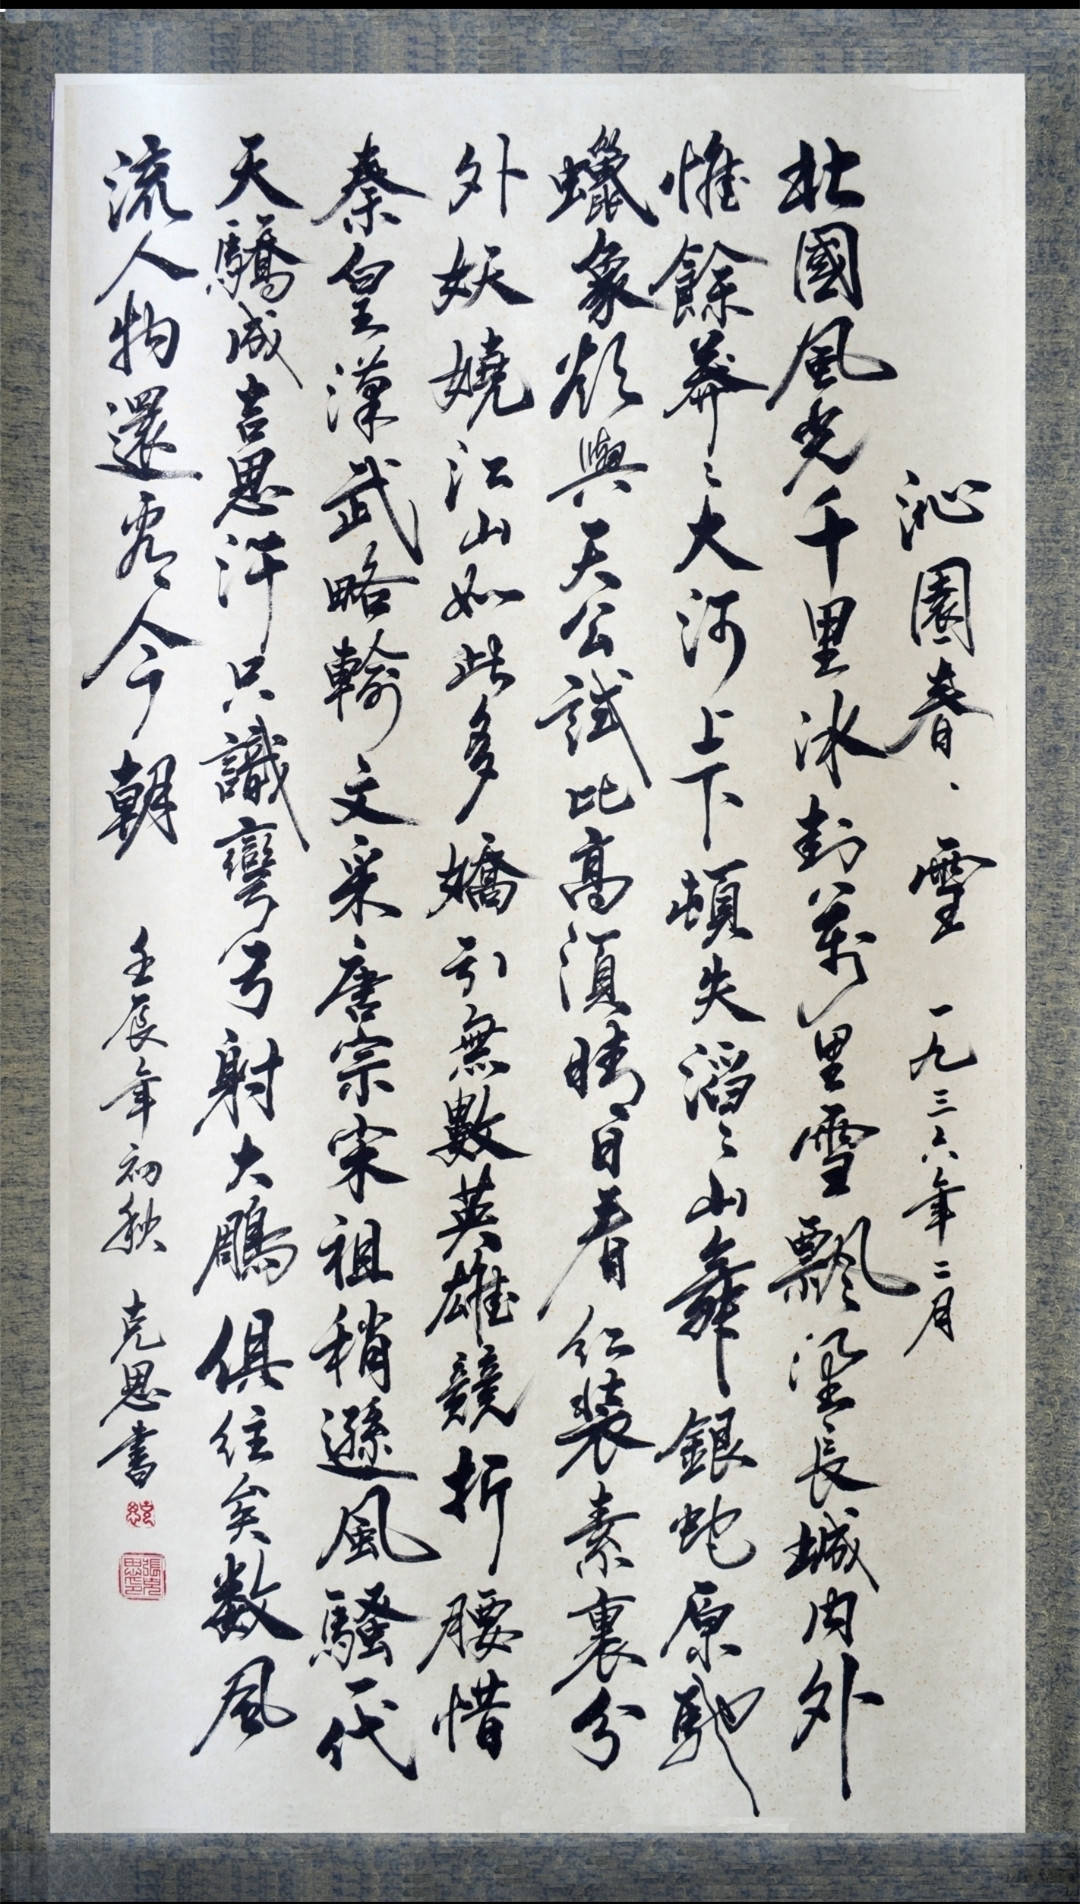 沁園春、雪 一九三六年二月
北國風光千里冰封萬里雪飄望長城内外
惟餘莽〻大河上下頓失滔〻山舞銀蛇原馳
蠟象欲與天公試比高須晴日看紅裝素裹分
外妖嬈江山如此多嬌引無數英雄競折腰惜
秦皇漢武略輸文采唐宗宋祖稍遜風騷一代
天驕成吉思汗只識彎弓射大鵰俱往矣数風
流人物還看今朝 壬辰年初秋 克思書